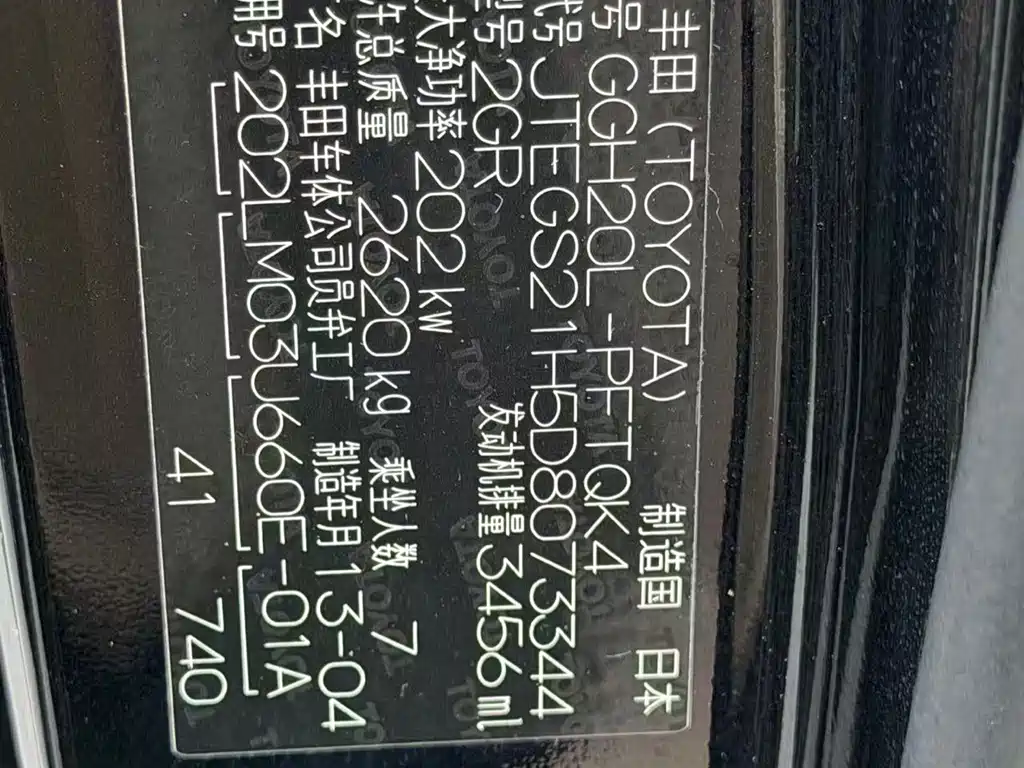 丰田(TOYOTA) 制造国 日本
号 GGH20L-PFTQK4
代号 JTEGS21H5D8073344
型号 2GR 发动机排量 3456ml
大净功率 202kW
许总质量 2620kg 乘坐人数 7
名 丰田车体公司员弁工厂 制造年月 13-04
用号 202LM03U660E-01A
41 740